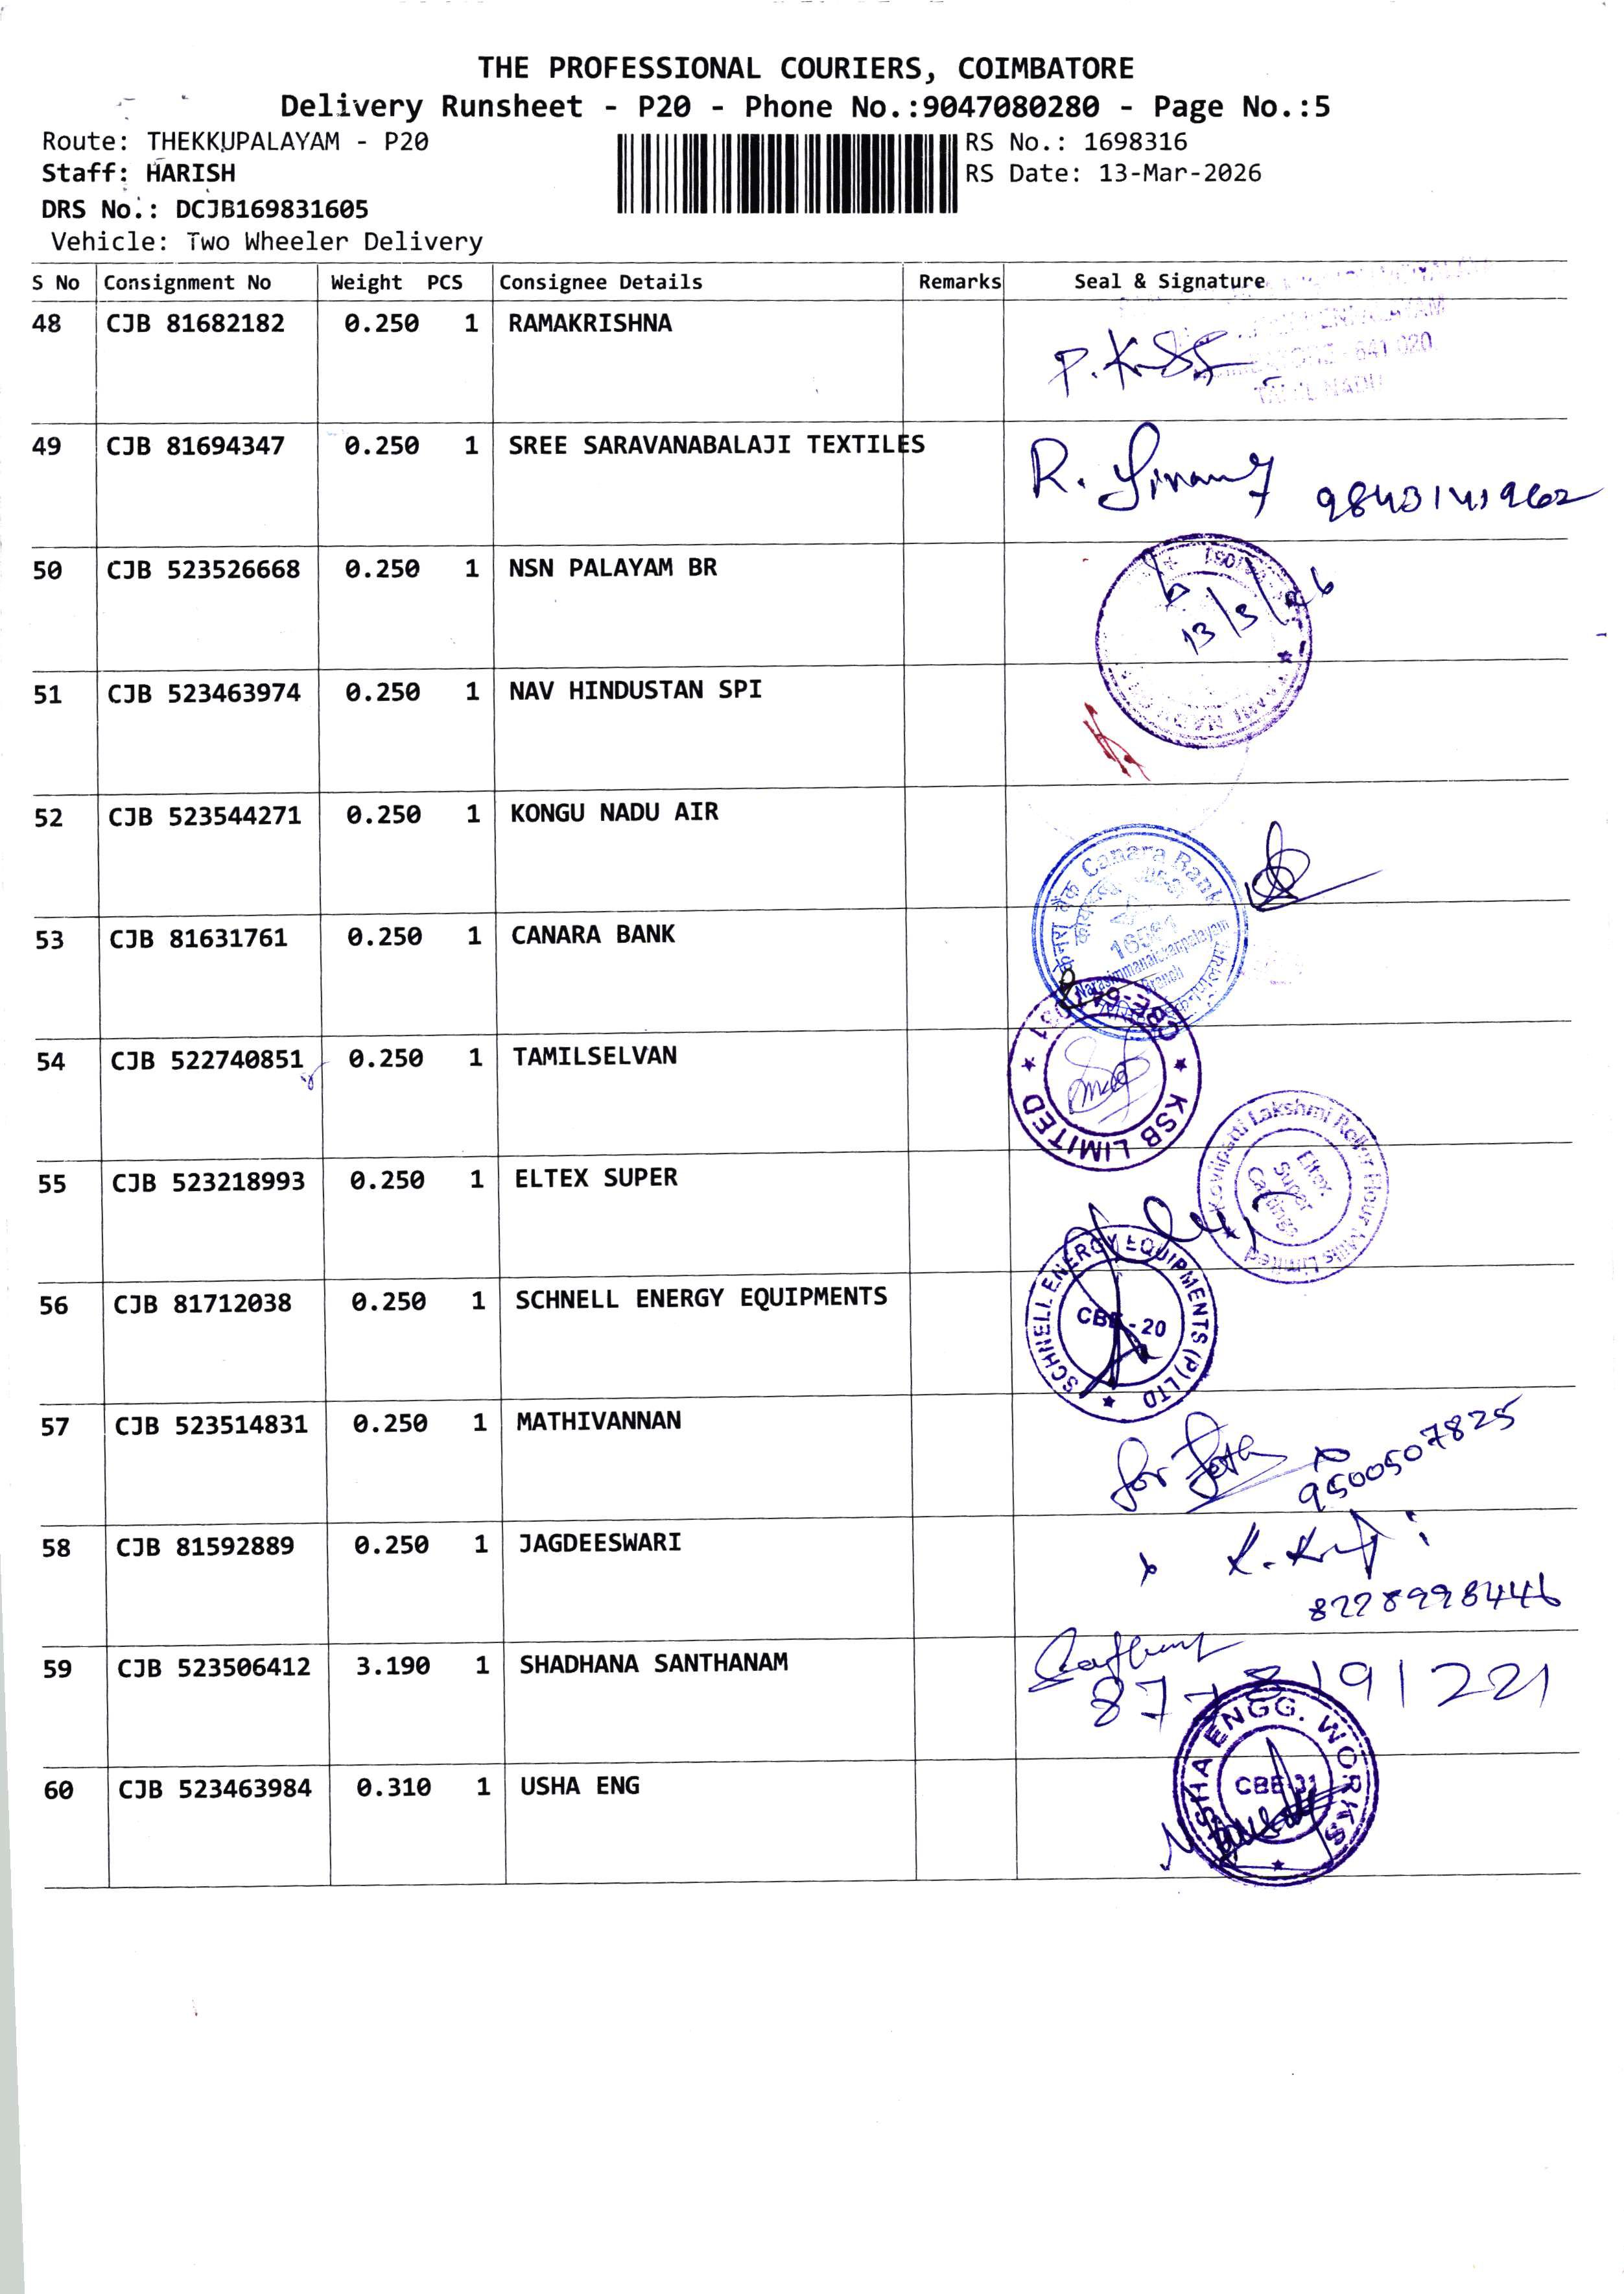 THE PROFESSIONAL COURIERS, COIMBATORE
Delivery Runsheet - P20 - Phone No.:9047080280 - Page No.:5
Route: THEKKUPALAYAM - P20
RS No.: 1698316
Staff: HARISH
RS Date: 13-Mar-2026
DRS No.: DCJB169831605
Vehicle: Two Wheeler Delivery
S No Consignment No Weight PCS Consignee Details Remarks Seal & Signature
48 CJB 81682182 0.250 1 RAMAKRISHNA
641 020
TAMIL NADU
49 CJB 81694347 0.250 1 SREE SARAVANABALAJI TEXTILES
R.
50 CJB 523526668 0.250 1 NSN PALAYAM BR
13/3/26
51 CJB 523463974 0.250 1 NAV HINDUSTAN SPI
52 CJB 523544271 0.250 1 KONGU NADU AIR
Canara Bank
केनरा बैंक
Narasimmanaickenpalayam
Branch
53 CJB 81631761 0.250 1 CANARA BANK
54 CJB 522740851 0.250 1 TAMILSELVAN
KSB LIMITED
55 CJB 523218993 0.250 1 ELTEX SUPER
Kovilpatti Lakshmi Roller Flour Mills Limited
Eltex
Super
Castings
56 CJB 81712038 0.250 1 SCHNELL ENERGY EQUIPMENTS
SCHNELL ENERGY EQUIPMENTS (P) LTD
CBE - 20
57 CJB 523514831 0.250 1 MATHIVANNAN
for
9500507825
58 CJB 81592889 0.250 1 JAGDEESWARI
59 CJB 523506412 3.190 1 SHADHANA SANTHANAM
60 CJB 523463984 0.310 1 USHA ENG
USHA ENGG. WORKS
CBE-31